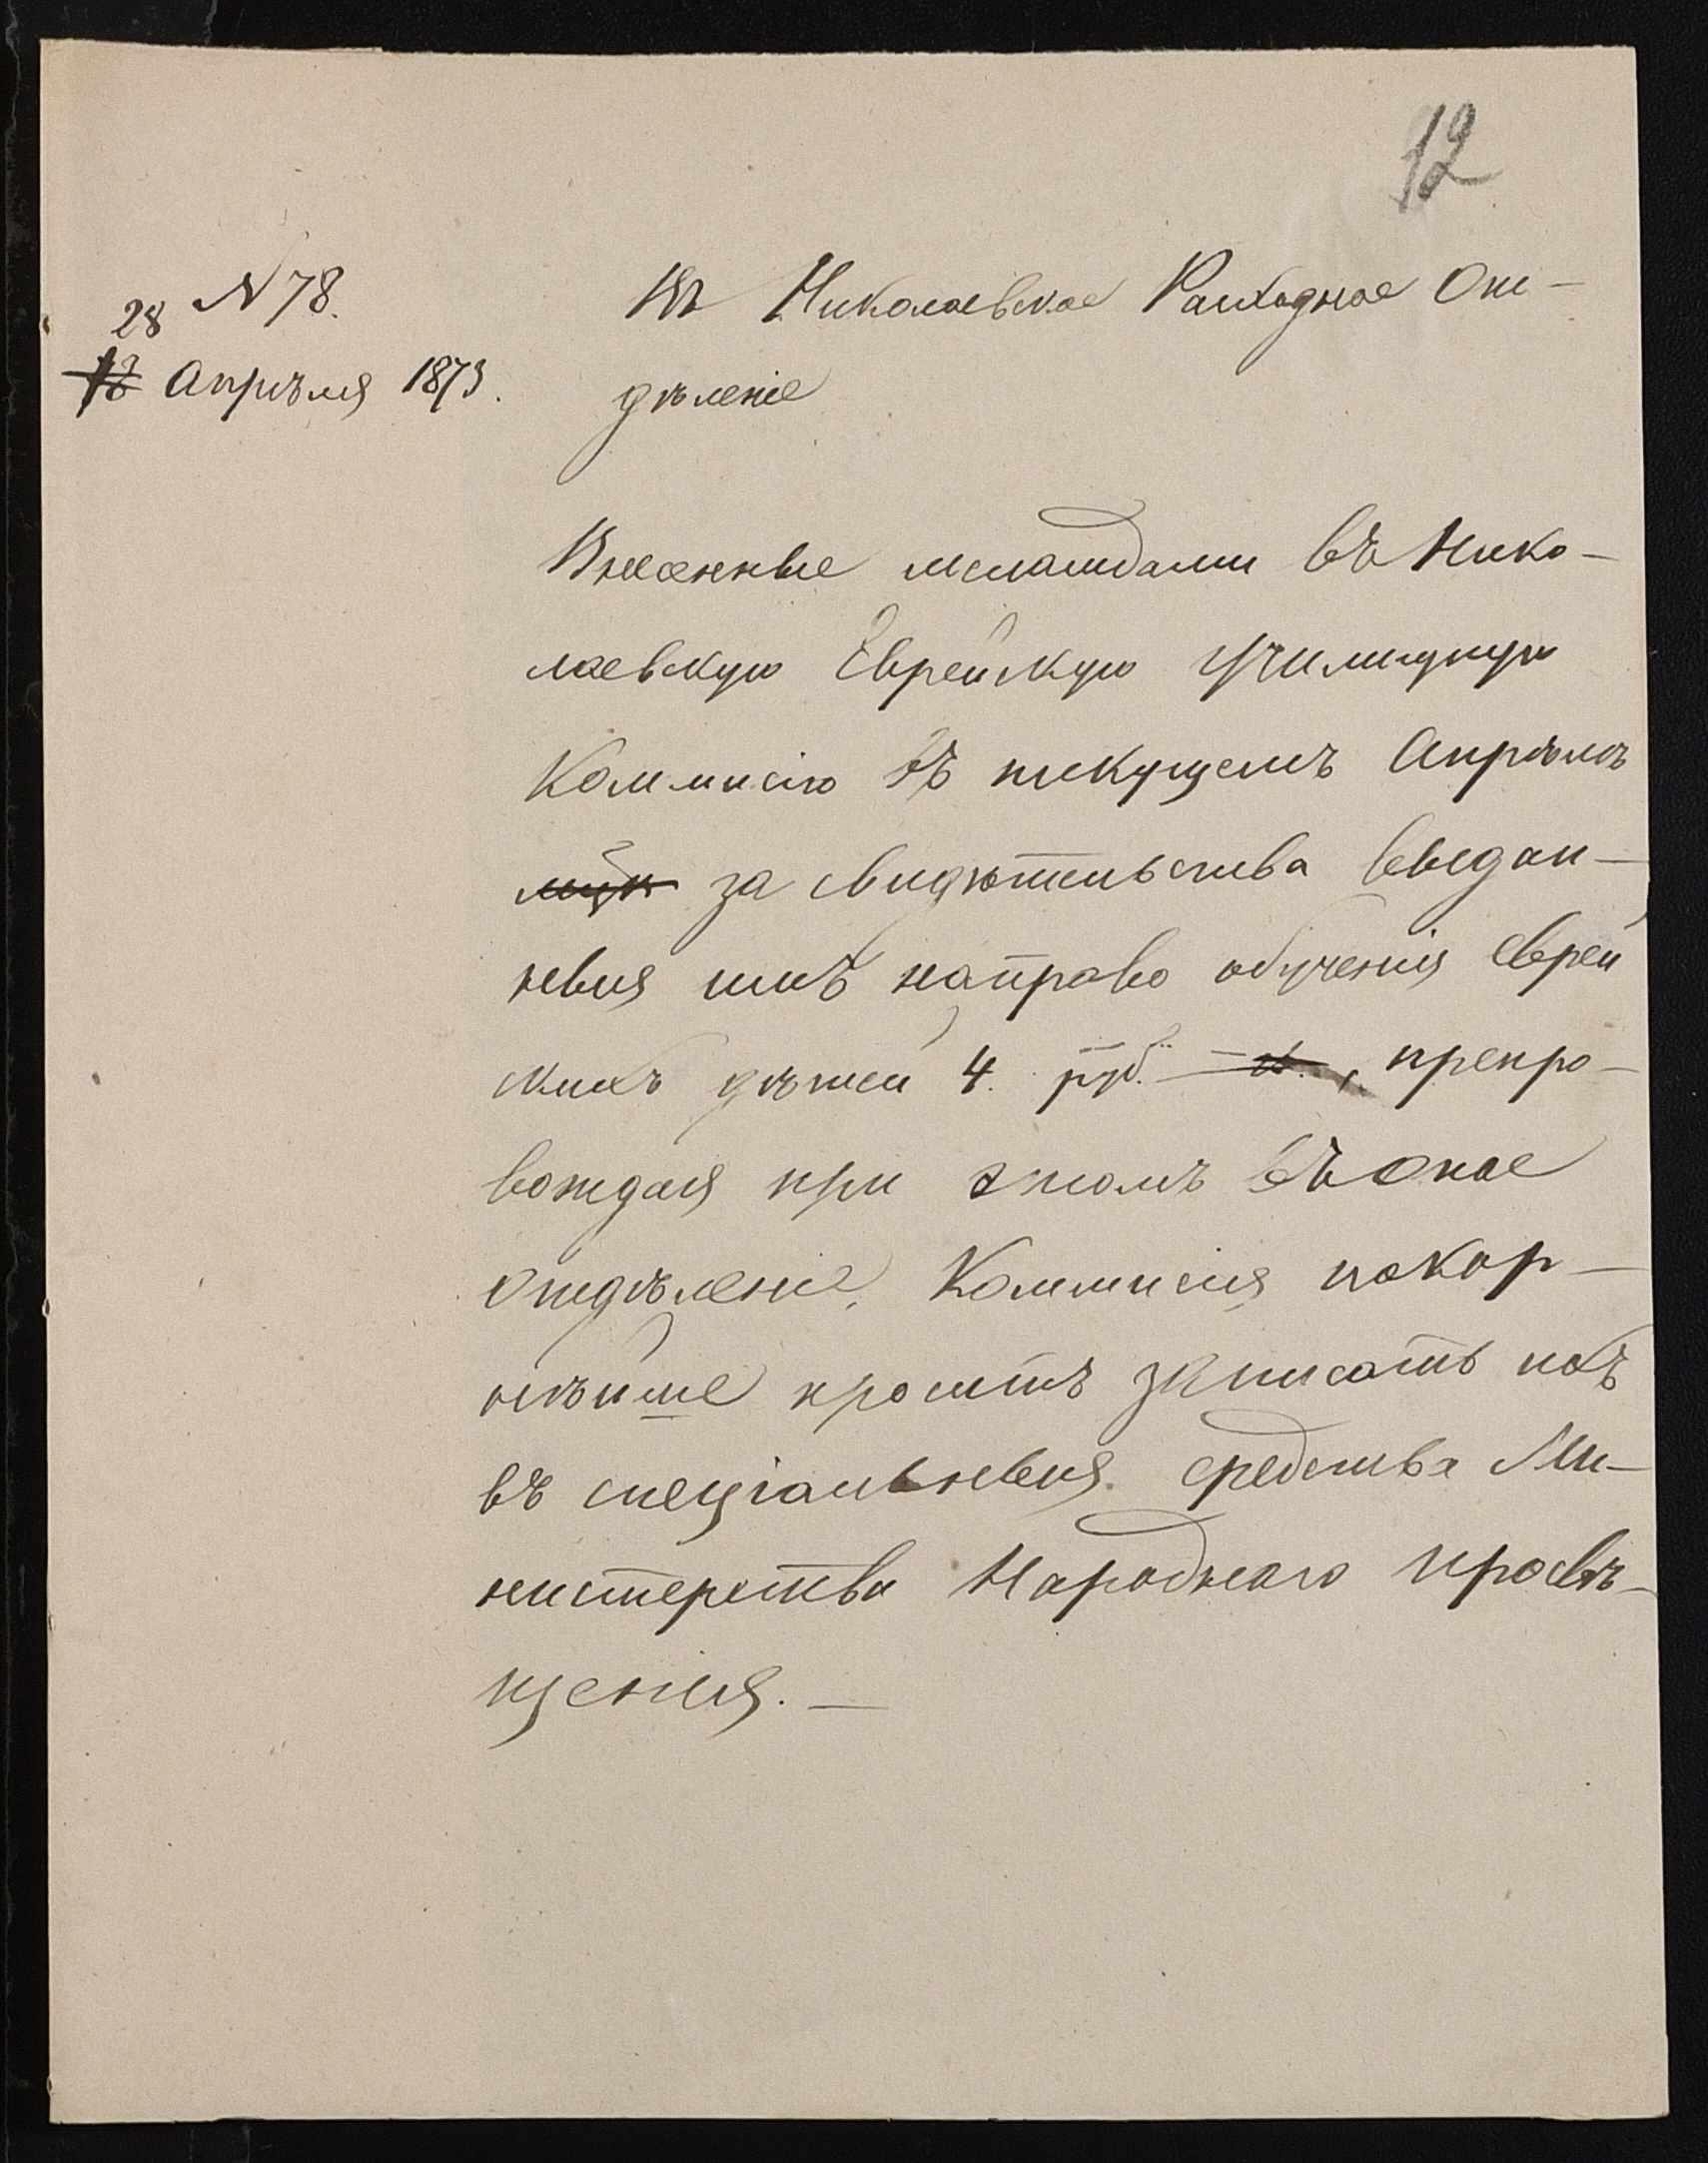 12
N 78.
28
18 Апрѣля 1873.
Въ Николаевское Расходное От-
дѣленіе
Внесенные меламдами въ Нико-
лаевскую Еврейскую училищную
Коммисію въ текущемъ Апрѣлѣ
за свидѣтельства выдан-
ныя имъ на право обученія еврей
скихъ дѣтей 4. руб. —, препро-
вождая при этомъ въ оное
отдѣленіе, Коммисія покор-
нѣйше проситъ записать ихъ
въ спеціальныя средства Ми-
нистерства Народнаго просвѣ-
щенія. —